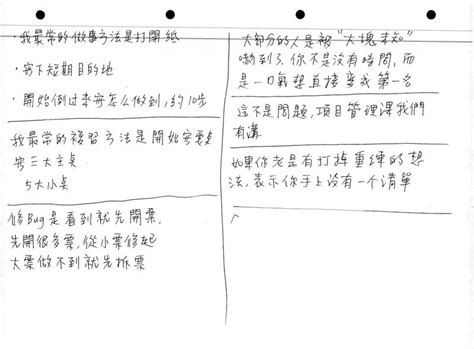 · 我最常的做事方法是打開紙
· 寫下短期目的地
· 開始倒过來寫怎么做到,約10步
我最常的複習方法是開始寫重點
寫三大主点
5大小点
修Bug是看到就先開票,
先開很多票,從小票修起
大票做不到就先拆票
大部分的人是被“大塊未知”
嚇到了.你不是沒有時間,而
是一口氣想直接變成第一名
這不是問題,項目管理課我們
有講
如果你老是有打掉重練的想
法,表示你手上沒有一个清單